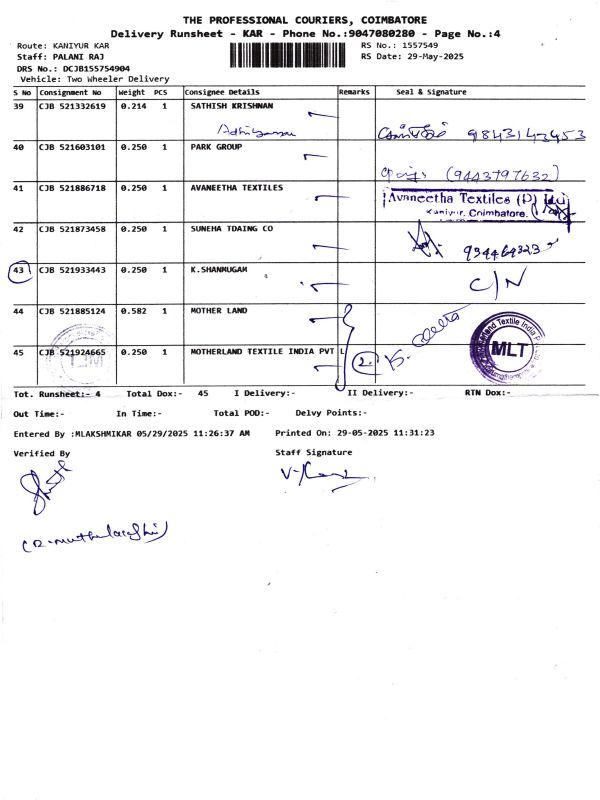 THE PROFESSIONAL COURIERS, COIMBATORE
Delivery Runsheet - KAR - Phone No.:9047080280 - Page No.:4
Route: KANIYUR KAR RS No.: 1557549
Staff: PALANI RAJ RS Date: 29-May-2025
DRS No.: DCJB155754904
Vehicle: Two Wheeler Delivery
S No Consignment No Weight PCS Consignee Details Remarks Seal & Signature
39 CJB 521332619 0.214 1 SATHISH KRISHNAN
9843143453
40 CJB 521603101 0.250 1 PARK GROUP
(9443797632)
41 CJB 521886718 0.250 1 AVANEETHA TEXTILES Avaneetha Textiles (P) Ltd
Kaniyur, Coimbatore.
42 CJB 521873458 0.250 1 SUNEHA TDAING CO
43 CJB 521933443 0.250 1 K.SHANMUGAM C/N
44 CJB 521885124 0.582 1 MOTHER LAND
45 CJB 521924665 0.250 1 MOTHERLAND TEXTILE INDIA PVT L 2. MLT
Tot. Runsheet:- 4 Total Dox:- 45 I Delivery:- II Delivery:- RTN Dox:-
Out Time:- In Time:- Total POD:- Delvy Points:-
Entered By :MLAKSHMIKAR 05/29/2025 11:26:37 AM Printed On: 29-05-2025 11:31:23
Verified By Staff Signature